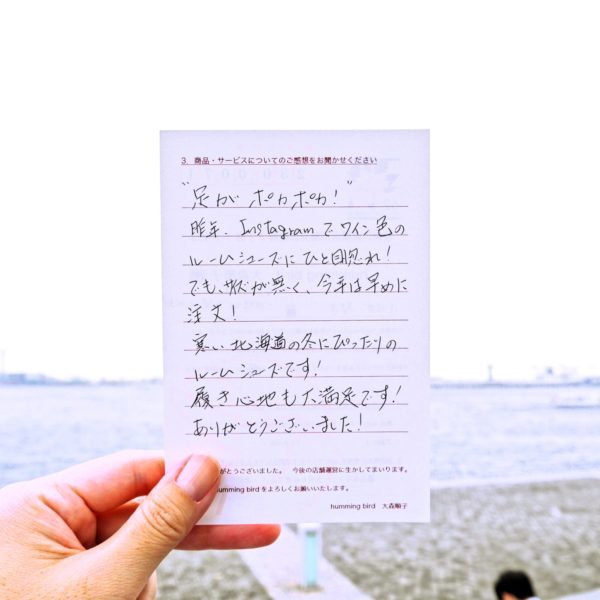 3. 商品・サービスについてのご感想をお聞かせください
"足がポカポカ！"
昨年、Instagramでワイン色の
ルームシューズにひと目惚れ！
でも、サイズが無く、今年は早めに
注文！
寒い北海道の冬にぴったりの
ルームシューズです！
履き心地も大満足です！
ありがとうございました！
がとうございました。 今後の店舗運営に生かしてまいります。
humming birdをよろしくお願いいたします。
humming bird 大森順子